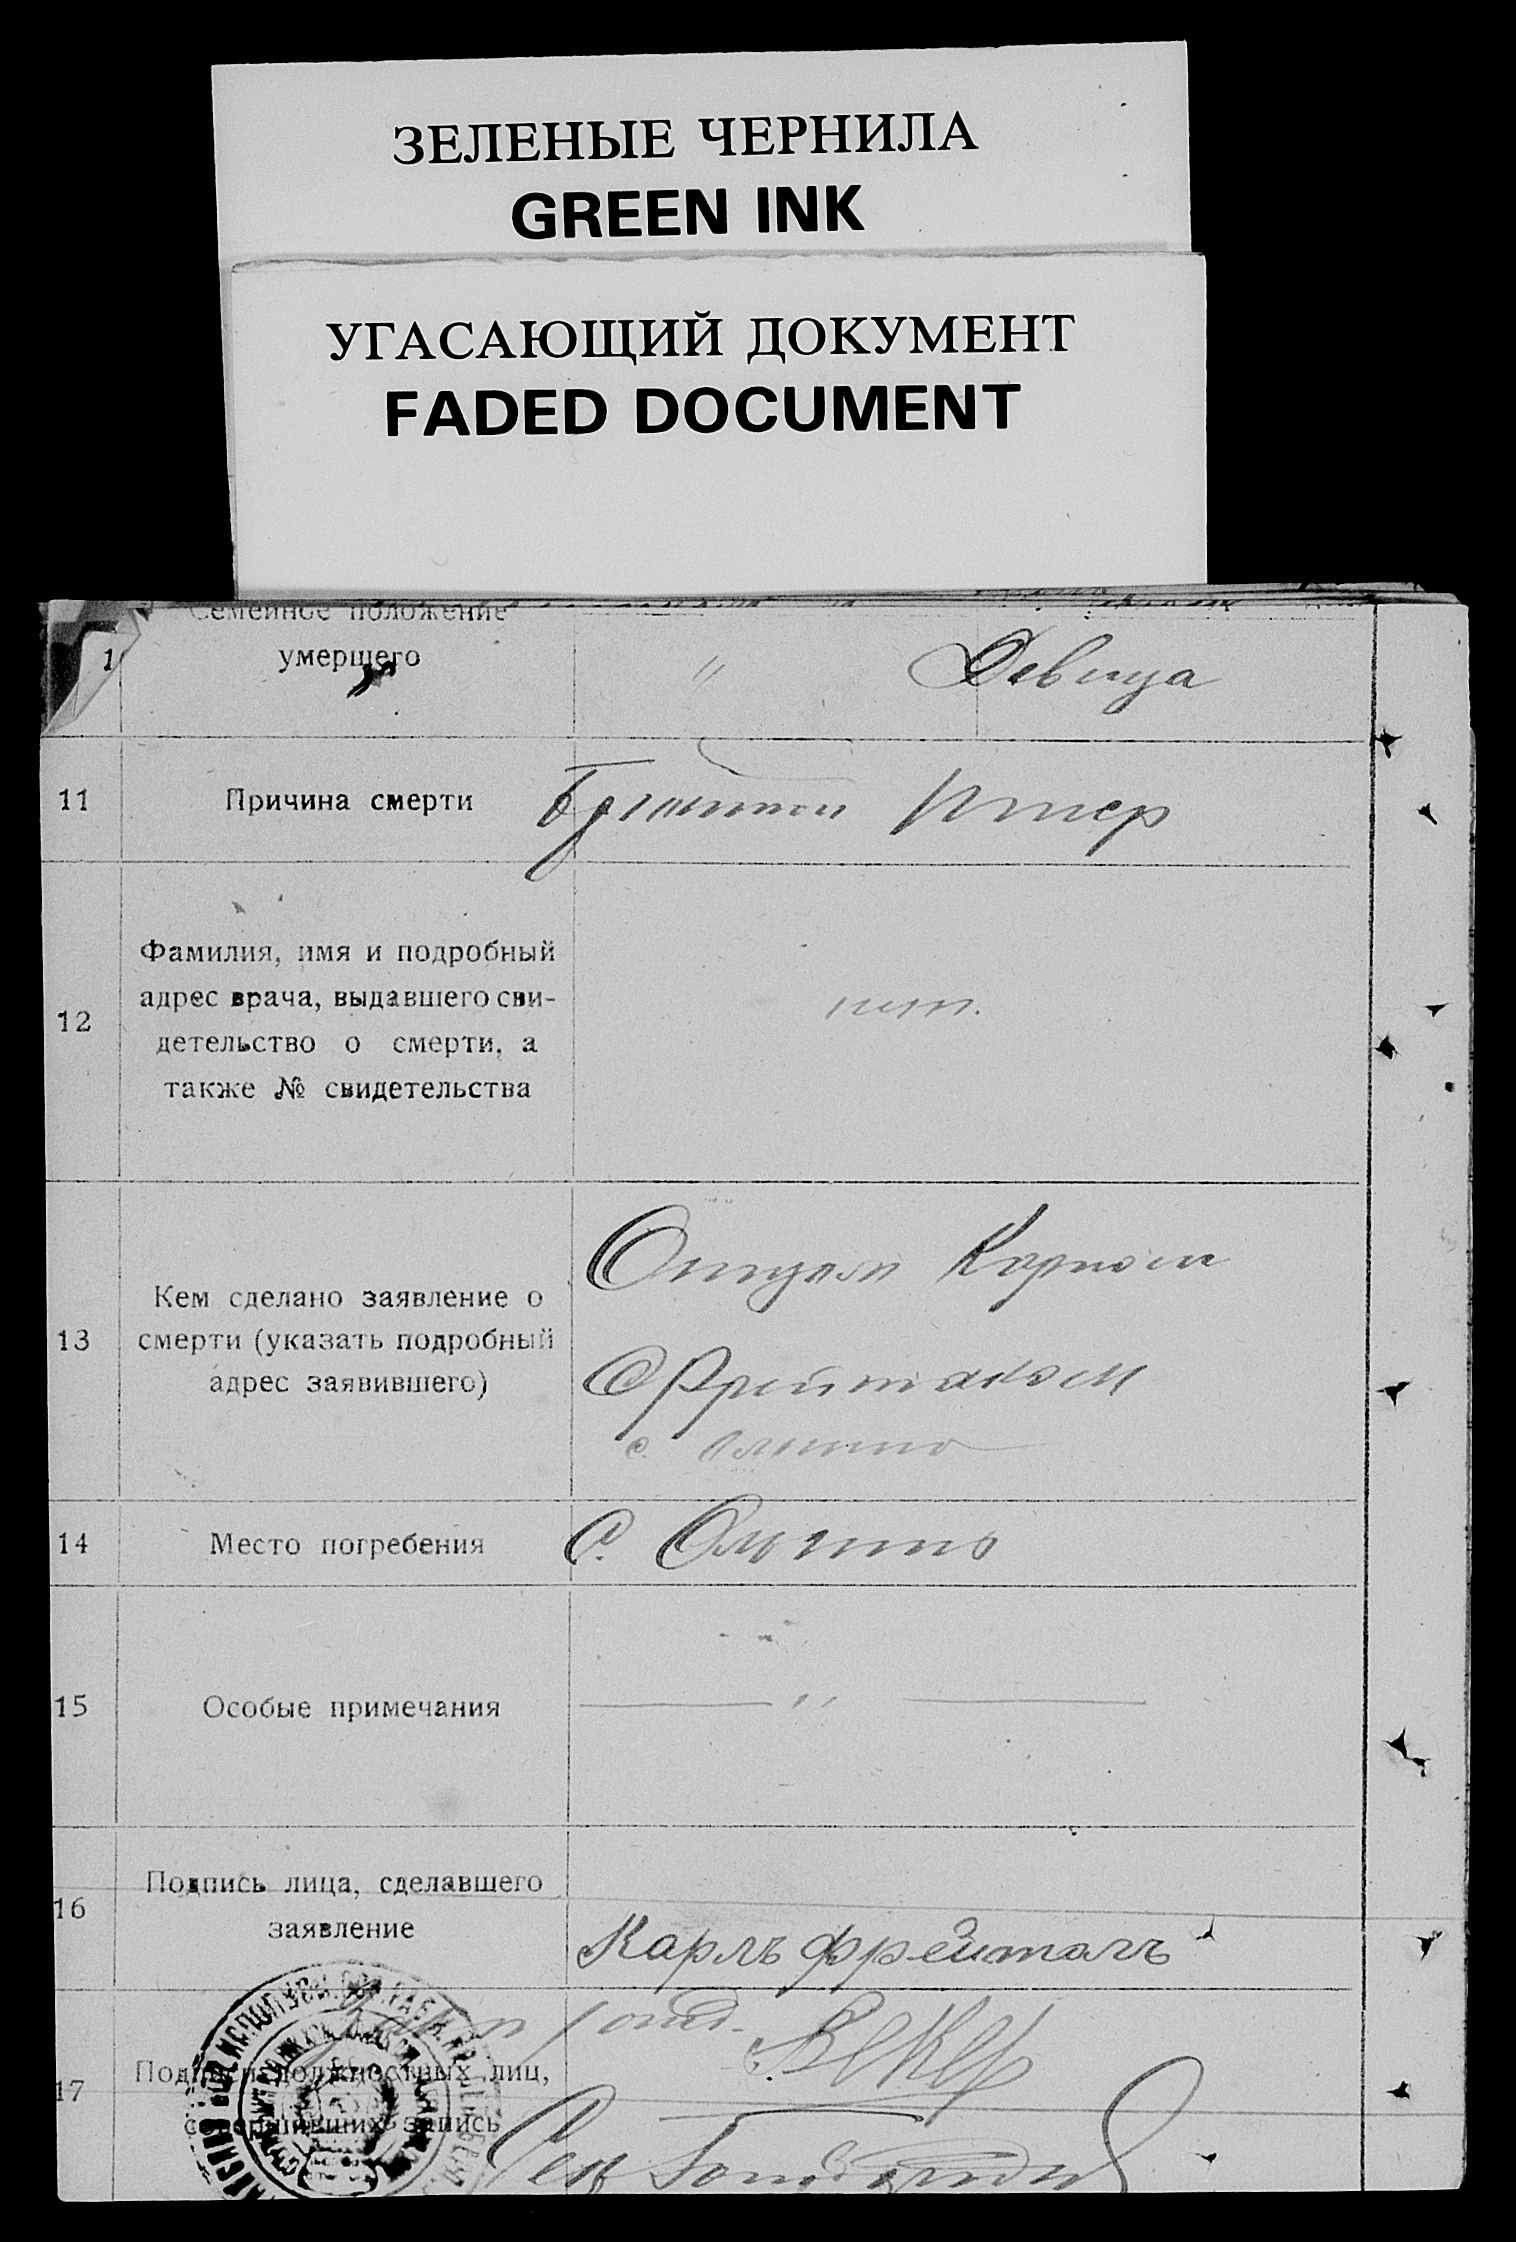 ЗЕЛЕНЫЕ ЧЕРНИЛА
GREEN INK
УГАСАЮЩИЙ ДОКУМЕНТ
FADED DOCUMENT
Семейное положение
умершего
" Девица
11 Причина смерти
Брюшной
12
Фамилия, имя и подробный
адрес врача, выдавшего сви-
детельство о смерти, а
также № свидетельства
нет.
13
Кем сделано заявление о
смерти (указать подробный
адрес заявившего)
Отцом Карлом
Фрейтагом
с.
14 Место погребения
с.
15 Особые примечания
"
16
Подпись лица, сделавшего
заявление
Карлъ Фрейтагъ
17
Подписи должностных лиц,
совершивших запись
Бекер
Сек